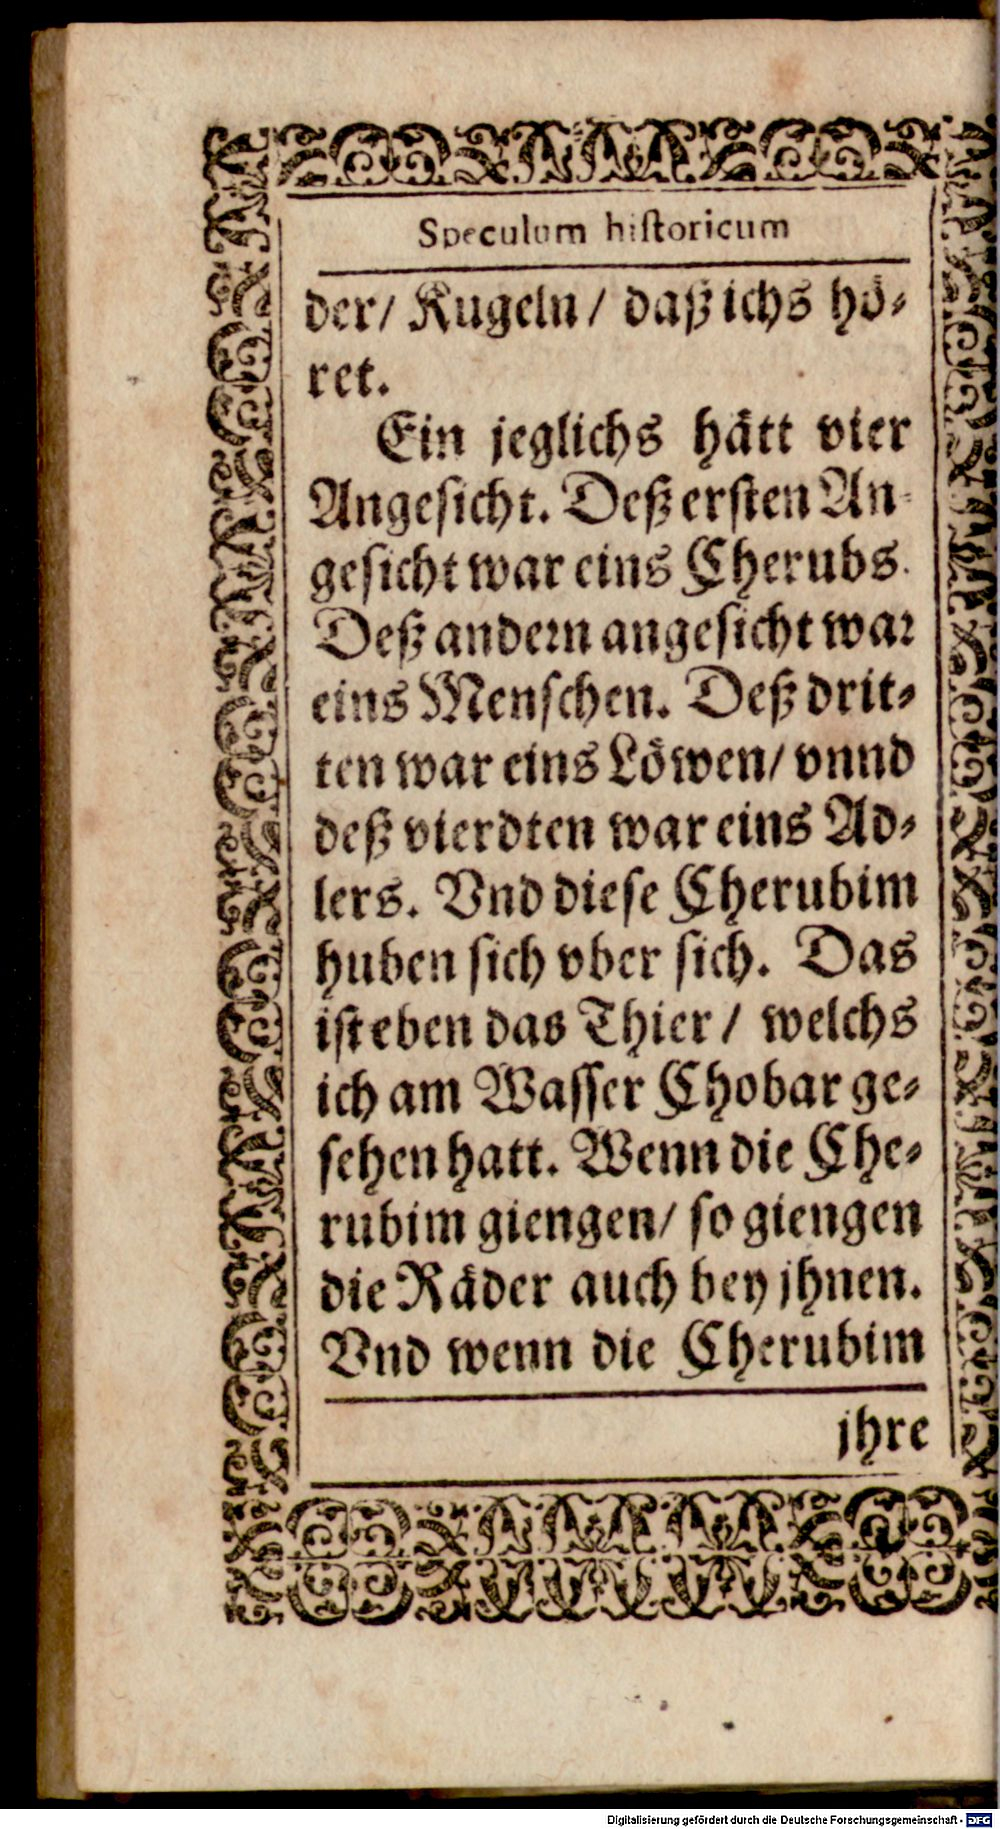 Speculum historicum
der/ Kugeln/ daß ichs hö-
ret.
Ein jeglichs hätt vier
Angesicht. Deß ersten An-
gesicht war eins Cherubs.
Deß andern angesicht war
eins Menschen. Deß drit-
ten war eins Löwen/ vnnd
deß vierdten war eins Ad-
lers. Vnd diese Cherubim
huben sich vber sich. Das
ist eben das Thier/ welchs
ich am Wasser Chobar ge-
sehen hatt. Wenn die Che-
rubim giengen/ so giengen
die Räder auch bey jhnen.
Vnd wenn die Cherubim
jhre
Digitalisierung gefördert durch die Deutsche Forschungsgemeinschaft - DFG